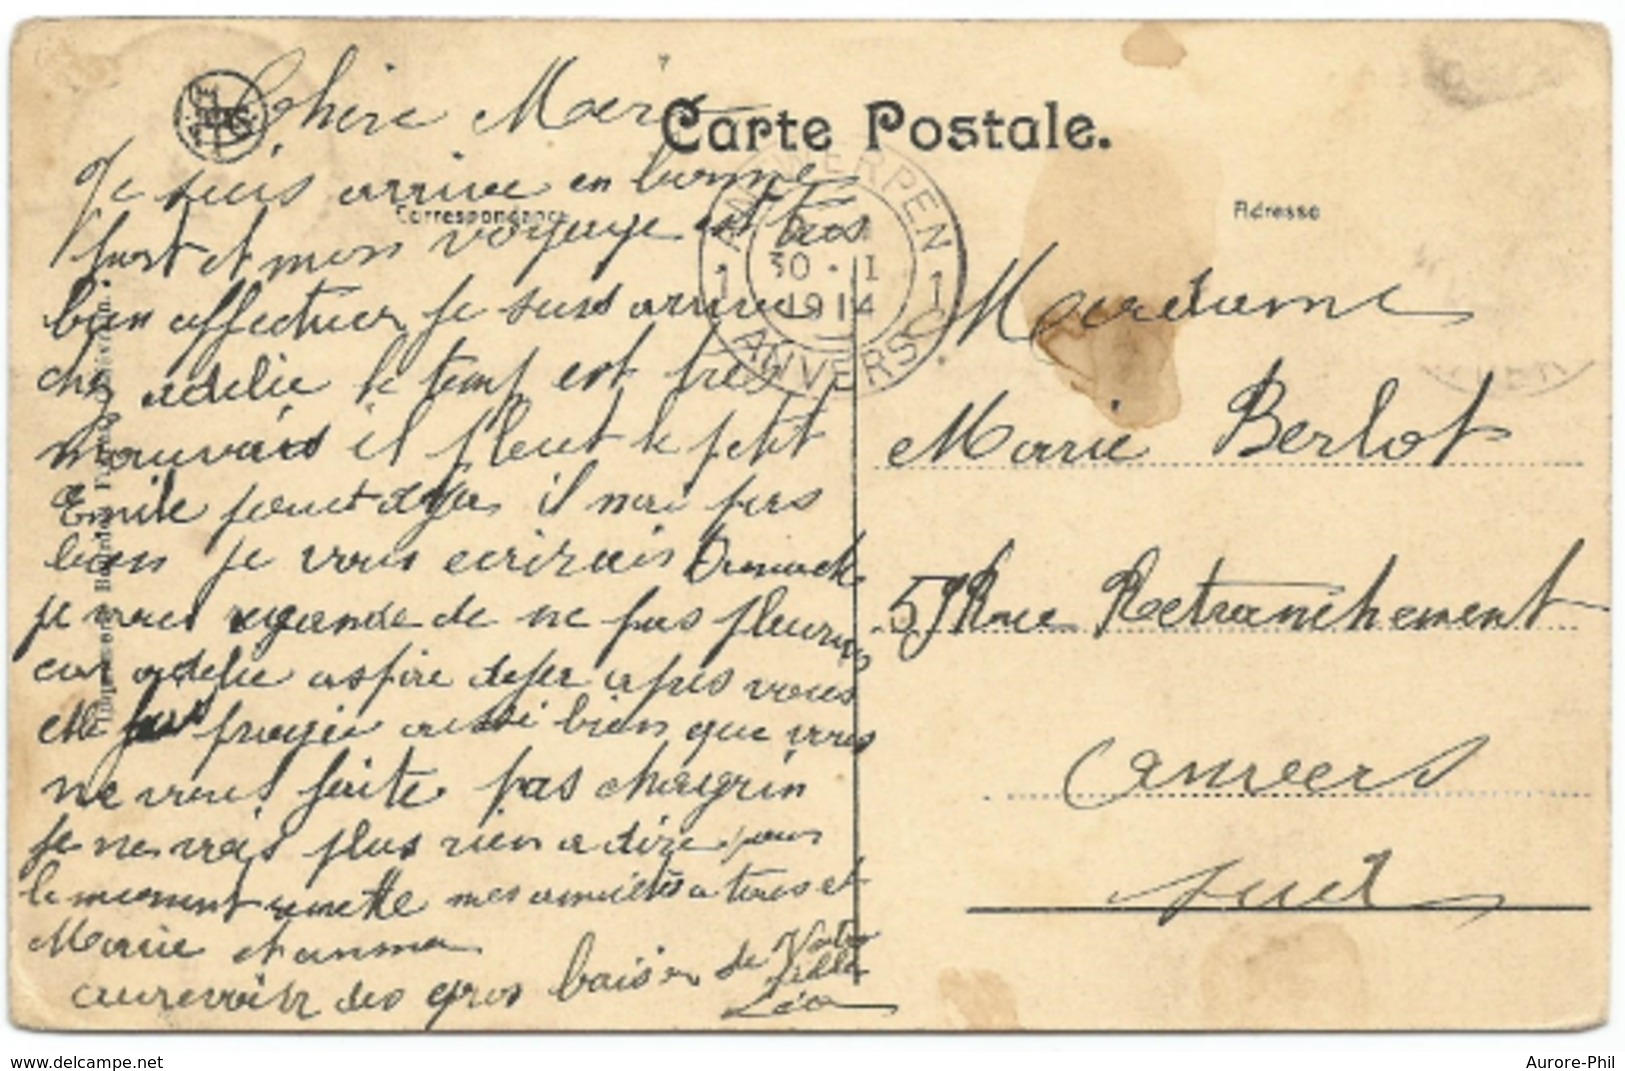 Carte Postale.
Correspondance
Adresse
ANTWERPEN
1 1
30 · I
1914
ANVERS
Chère Mère
Je suis arrivee en bonne
port et mon voyage est tres
bien effectuer je suis arrivee
chez adelie le temp est tres
mauvais il pleut le petit
Emile deja il pas
bien je vous ecrirais Dimanche
je vous de ne pas pleurer
car adelie aspire deja apres vous
elle aussi bien que vous
ne vous faite pas chagrin
je ne vois plus rien a dire pour
le moment remette mes amitiés a tous et
Marie et anna
aurevoir des gros baiser de Votre
fille
Léa
Madame
Marie Berlot
59 Rue Retranchement
Anvers
Sud
www.delcampe.net
Aurore-Phil